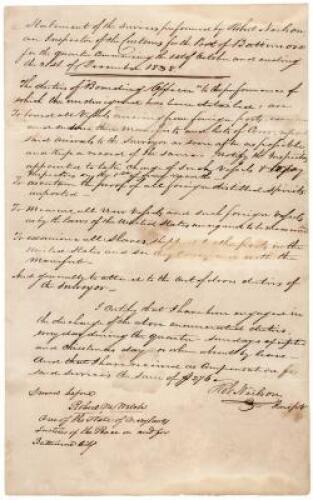 Statement of the services performed by Robert Neilson
an Inspector of the Customs for the Port of Baltimore
for the quarter Commencing the 1st of October and ending
the 31st of December 1838
The duties of "Boarding Officer" to the performance of
which the undersigned has been detailed, are
To board all Vessels arriving from foreign ports,
and endorse their manifests and lists of Crew, report
said arrivals to the Surveyor as soon after as possible
and keep a record of the same. Notify the Inspectors
appointed to take charge of such Vessels
To ascertain the proof of all foreign distilled Spirits
imported
To measure all New Vessels and such foreign Vessels
as by the laws of the United States are required to be measured
To examine all Slaves shipped to other ports in the
United States and see they correspond with the
Manifest
And generally to attend to the out of doors duties of
the Surveyor
I Certify that I have been engaged in
the discharge of the above enumerated duties,
every day during the quarter Sundays excepted
and Christmas day or when absent by leave
And that I have received as Compensation for
said services the sum of $276
Rob Neilson
Inspr
Sword before
Robert W Welch
One of the State of Maryland
Justices of the Peace in and for
Baltimore City